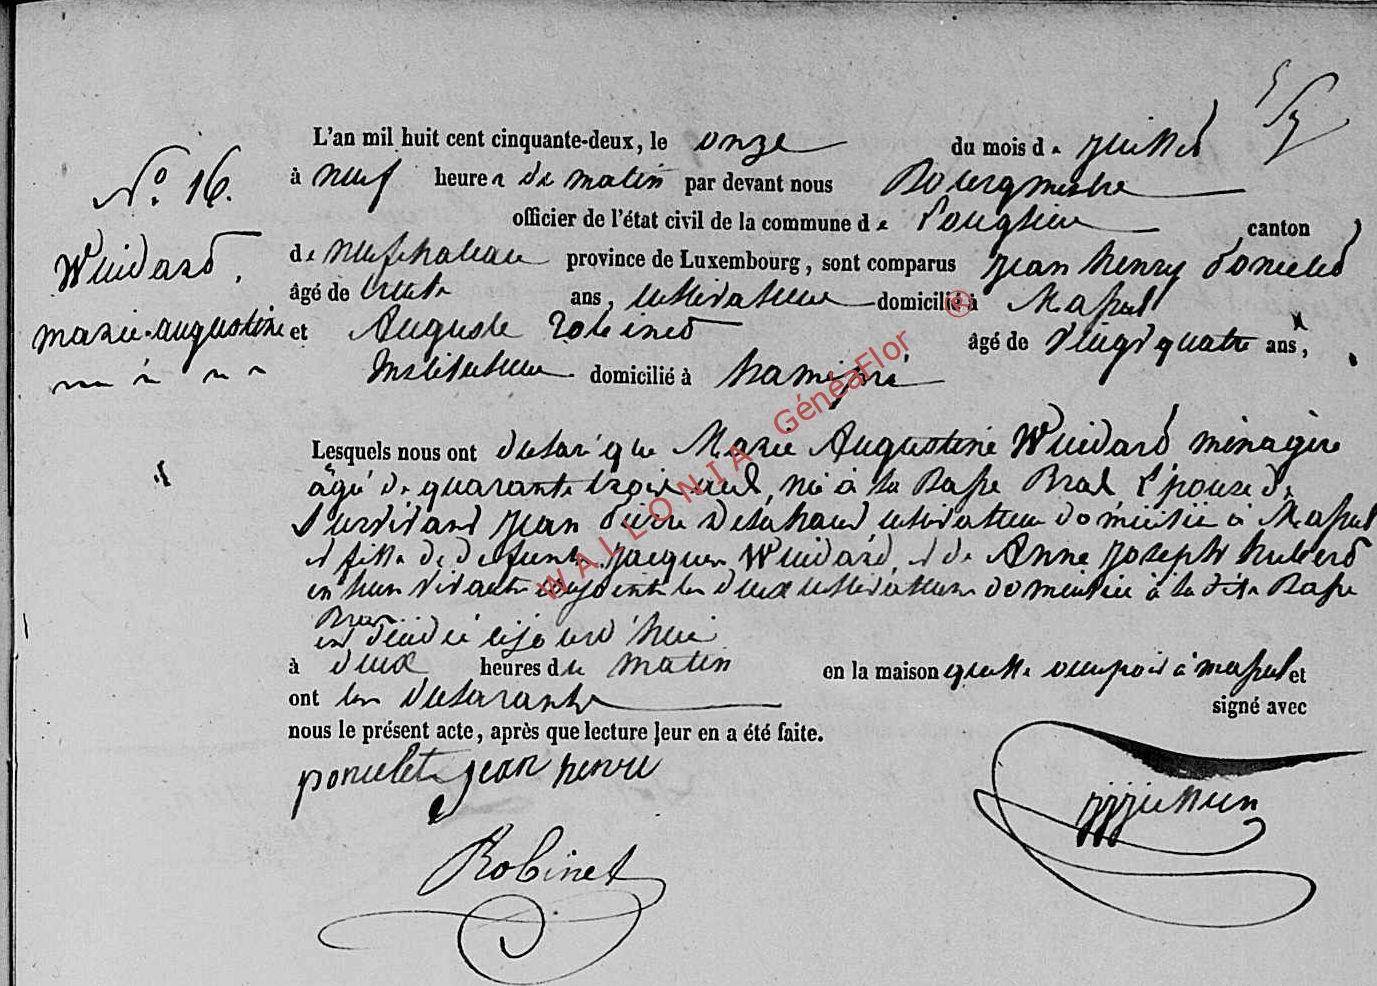 L'an mil huit cent cinquante-deux, le onze du mois de juillet
à neuf heures du matin par devant nous Bourgmestre
N.° 16.
officier de l'état civil de la commune de Longlier canton
Wuidard,
de neufchateau province de Luxembourg, sont comparus jean henry Poncelet
âgé de trente ans, cultivateur domicilié à Massul
marie-augustine
et Auguste Robinet âgé de vingt quatre ans,
Instituteur domicilié à hamipré
Lesquels nous ont déclaré que Marie Augustine Wuidard ménagère
âgé de quarante trois ans, né à la Basse Bral Epouse de
Survivant jean Pierre cultivateur domicilié à Massul
et fille de defunts jacques Wuidard, et de Anne joseph hubert
en leur vivant conjoints les deux cultivateurs domiciliés à la dite Basse
Bras
est décédé cejourd'hui
à deux heures du matin en la maison quelle occupoit à massul et
ont les déclarants signé avec
nous le présent acte, après que lecture leur en a été faite.
poncelet jean henri
Robinet
WALLONIA GénéaFlor ®